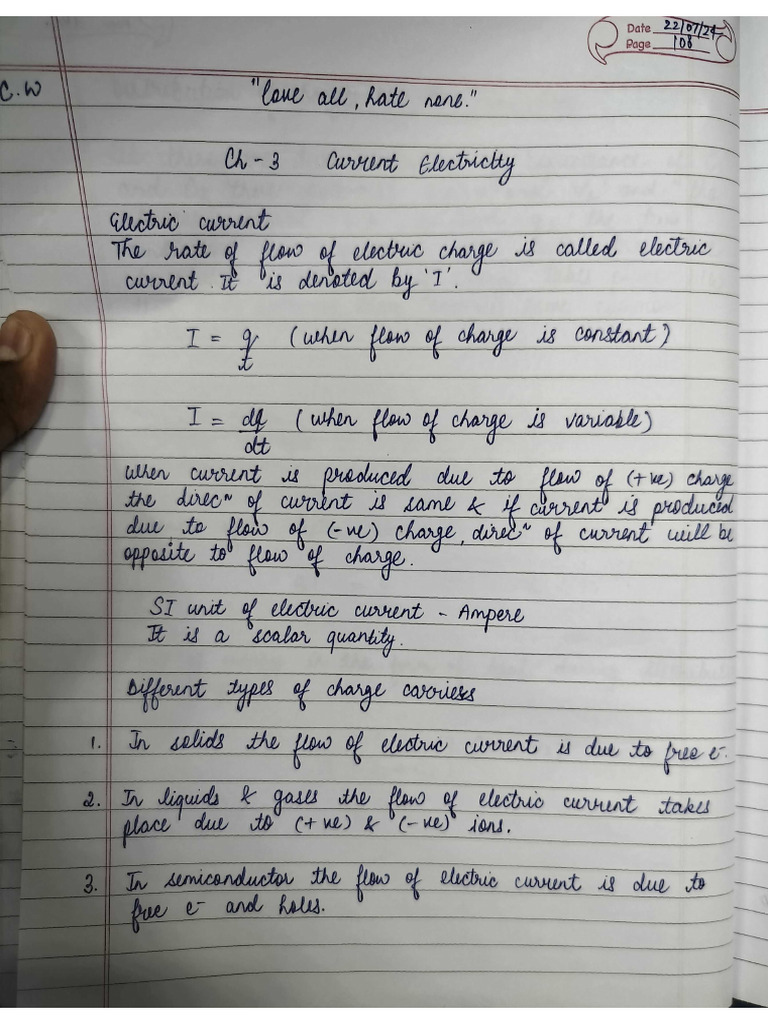 Date 22/07/24
Page 108
C.W
"Love all, hate none."
Ch - 3 Current Electricity
Electric current
The rate of flow of electric charge is called electric
current. It is denoted by 'I'.
I = q/t (when flow of charge is constant)
I = dq/dt (when flow of charge is variable)
When current is produced due to flow of (+ve) charge
the direcⁿ of current is same & if current is produced
due to flow of (-ve) charge, direcⁿ of current will be
opposite to flow of charge.
SI unit of electric current - Ampere
It is a scalar quantity.
Different types of charge carriers
1. In solids the flow of electric current is due to free e⁻.
2. In liquids & gases the flow of electric current takes
place due to (+ve) & (-ve) ions.
3. In semiconductor the flow of electric current is due to
free e⁻ and holes.